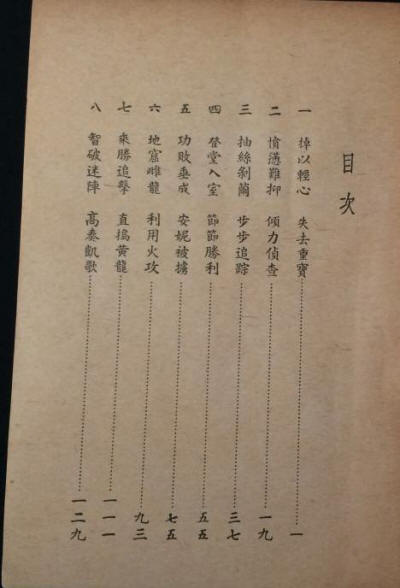 目次
一 掉以輕心 失去重寶………一
二 憤懣難抑 傾力偵查………一九
三 抽絲剝繭 步步追踪………三七
四 登堂入室 節節勝利………五五
五 功敗垂成 安妮被擄………七五
六 地窟雌龍 利用火攻………九三
七 乘勝追擊 直搗黃龍………一一一
八 智破迷陣 高奏凱歌………一二九